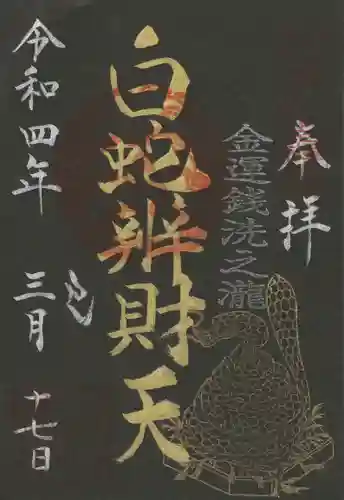 奉拝
金運銭洗之瀧
白蛇辨財天
巳
令和四年
三月
十七日